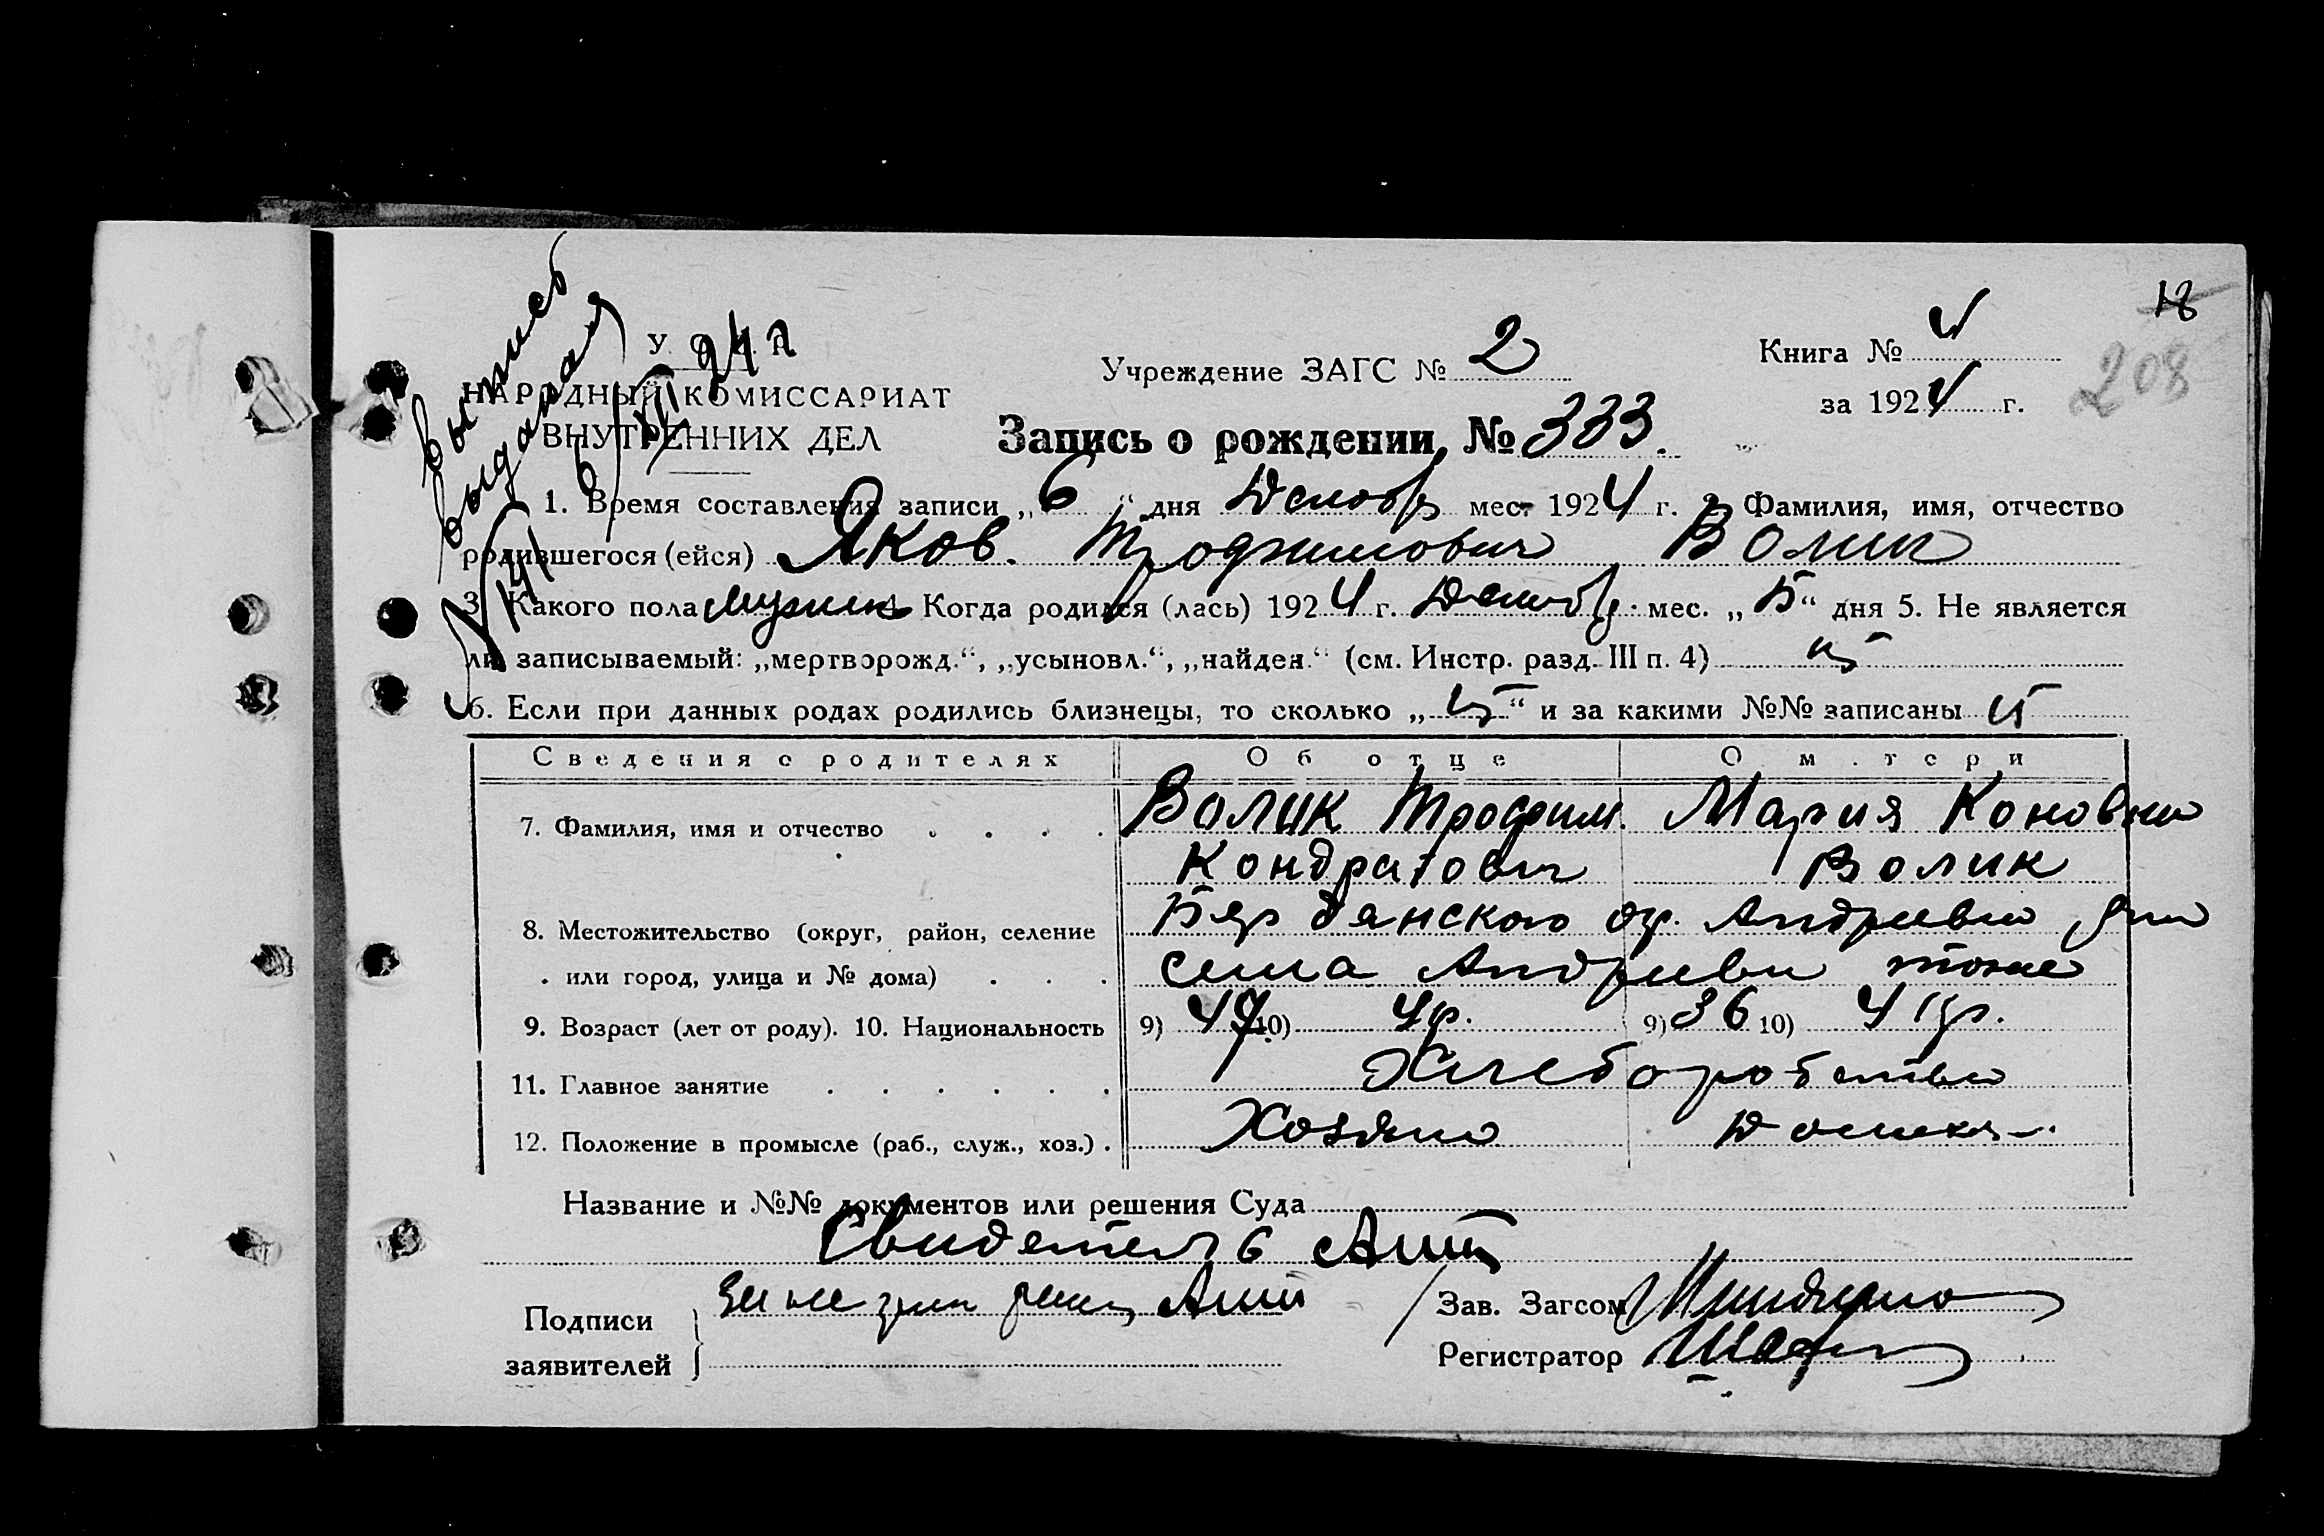 18
208
Выпись
выдана
У. С. С. Р.
НАРОДНЫЙ КОМИССАРИАТ
ВНУТРЕННИХ ДЕЛ
Учреждение ЗАГС № 2
Книга № 4
за 1924 г.
Запись о рождении, № 333.
1. Время составления записи „6“ дня Декабр мес. 1924 г. 2. Фамилия, имя, отчество
родившегося (ейся) Яков. Трофимович Волик
3. Какого пола мужск 4. Когда родился (лась) 1924 г. Декабр. мес. „5“ дня 5. Не является
ли записываемый: „мертворожд.“, „усыновл.“, „найден.“ (см. Инстр. разд. III п. 4)
6. Если при данных родах родились близнецы, то сколько „ “ и за какими №№ записаны
Сведения о родителях Об отце О матери
7. Фамилия, имя и отчество Волик Трофим. Мария Коновна
Кондратович Волик
8. Местожительство (округ, район, селение Бердянского ок. Андреевко
или город, улица и № дома) села Андреевки тоже
9. Возраст (лет от роду). 10. Национальность 9) 49 10) укр. 9) 36 10) укр.
11. Главное занятие Хлеборобство
12. Положение в промысле (раб., служ., хоз.) Хозяин Домохоз.
Название и №№ документов или решения Суда
Свидетель
Подписи
заявителей
Зав. Загсом
Регистратор